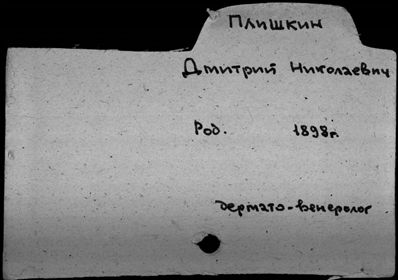 Плишкин
Дмитрий Николаевич
Род. 1898г.
дермато-венеролог